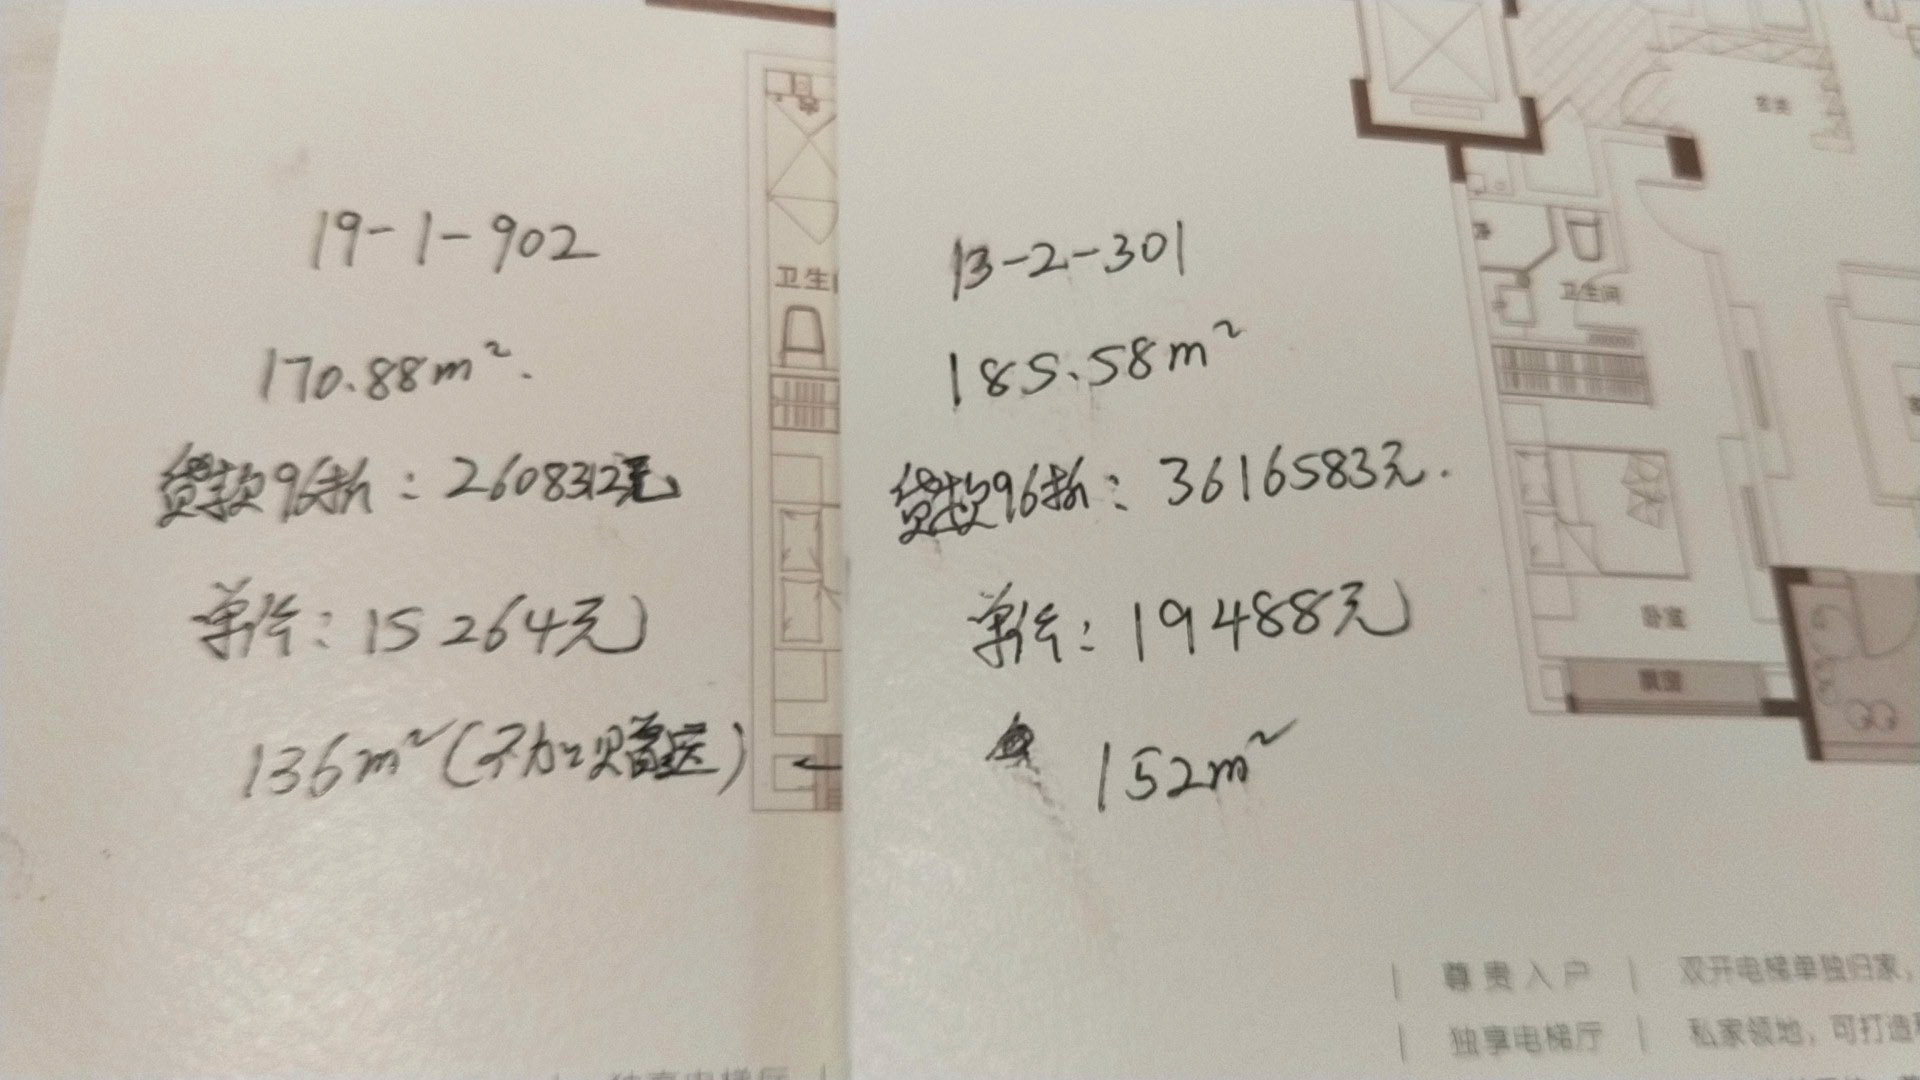 19-1-902
170.88m².
贷款96折：2608312元
单价：15264元
136m²(不加赠送)
卫生
13-2-301
185.58m²
贷款96折：3616583元.
单价：19488元
152m²
玄关
卫生间
卧室
飘窗
尊贵入户 | 双开电梯单独归家，
独享电梯厅 | 私家领地，可打造
独享电梯厅